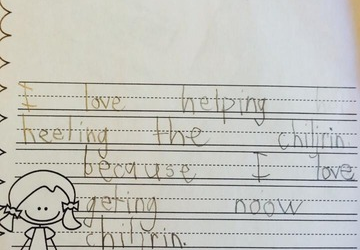 I love helping
heeling the chiljrin
because I love
geting noow
chiljrin.